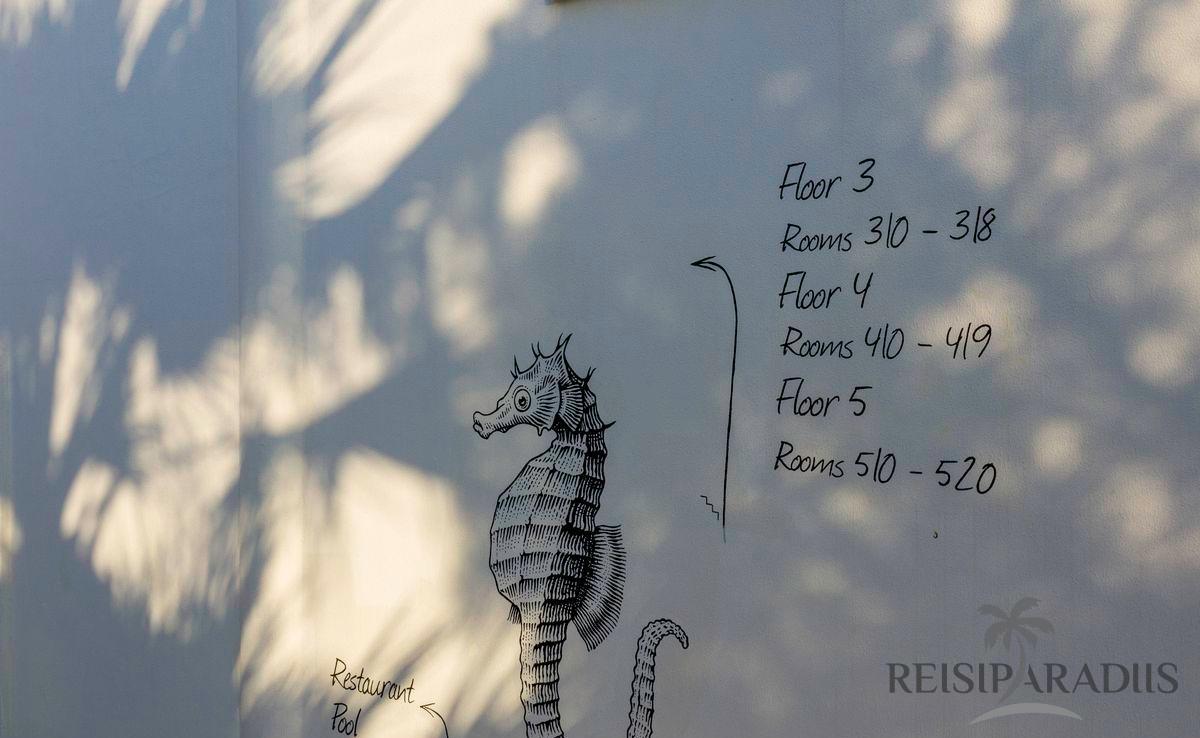 Floor 3
Rooms 310 - 318
Floor 4
Rooms 410 - 419
Floor 5
Rooms 510 - 520
Restaurant
Pool
REISIPARADIIS